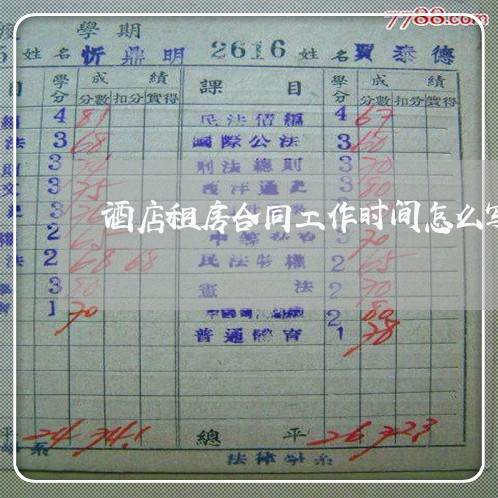 7788.com
學期
姓名 忻鼎明 2616 姓名 賈泰德
目 學分 成績 課目 學分 成績
分數 扣分 實得 分數 扣分 實得
4 81 民法債編 4 67
法 3 68 國際公法 3 60
3 刑法總則 3 70
3 75 西洋通史 3 80
酒店租房合同工作时间怎么写
2 65 70
法 2 68 68 民法物權 2 65
3 80 憲法 2 70
1 70 2 80
普通體育 1 78
24 74.1 總平 26 72.3
系 法律學系